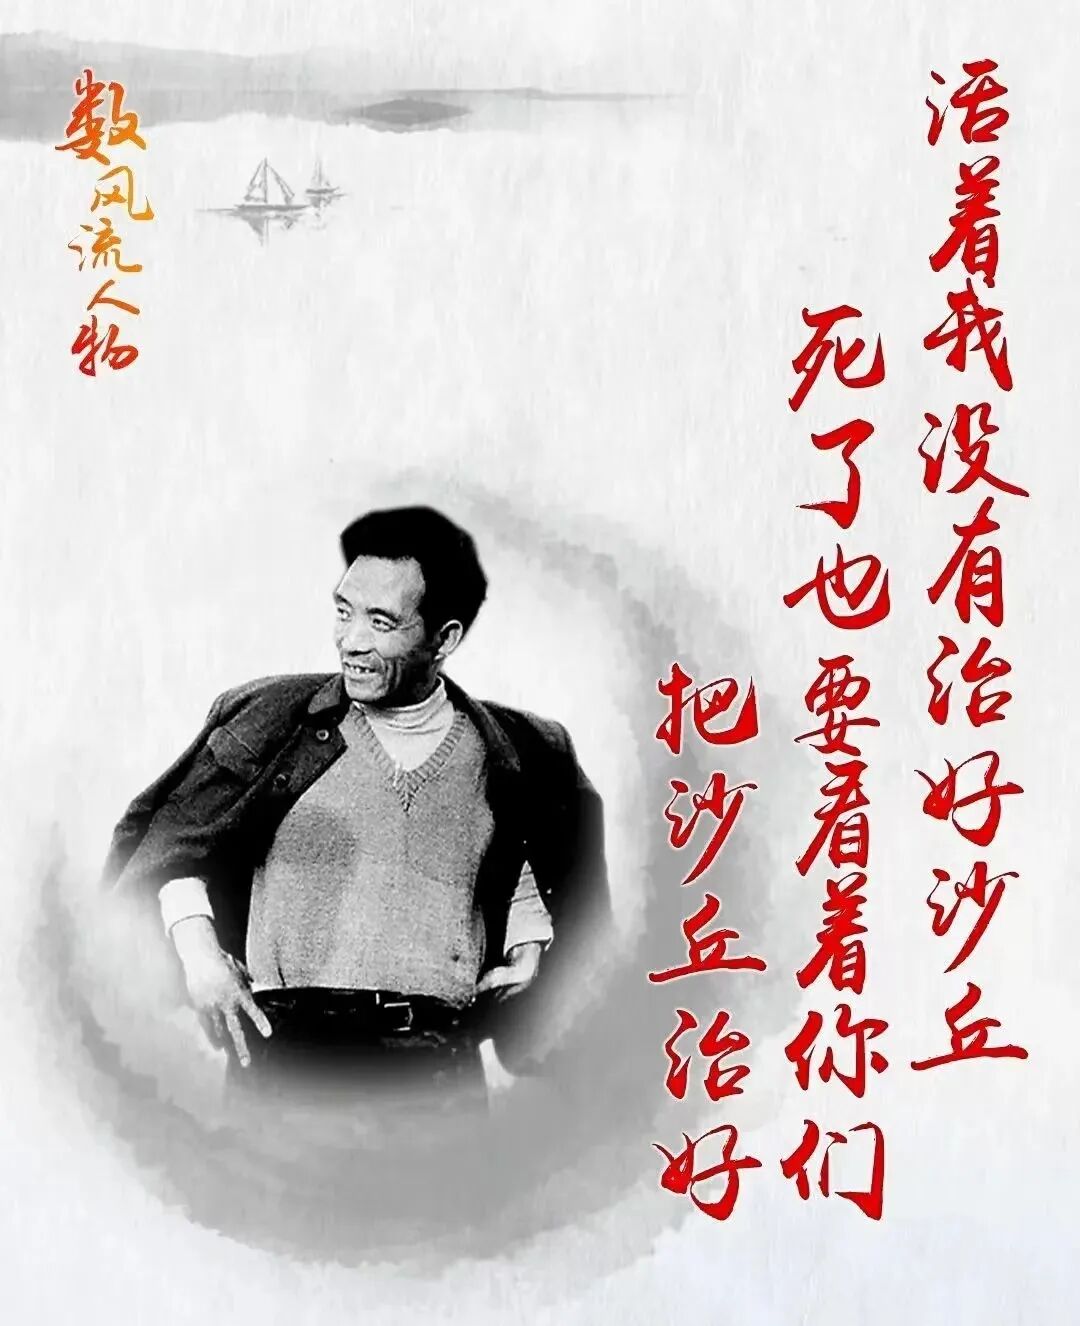 数风流人物
活着我没有治好沙丘
死了也要看着你们
把沙丘治好